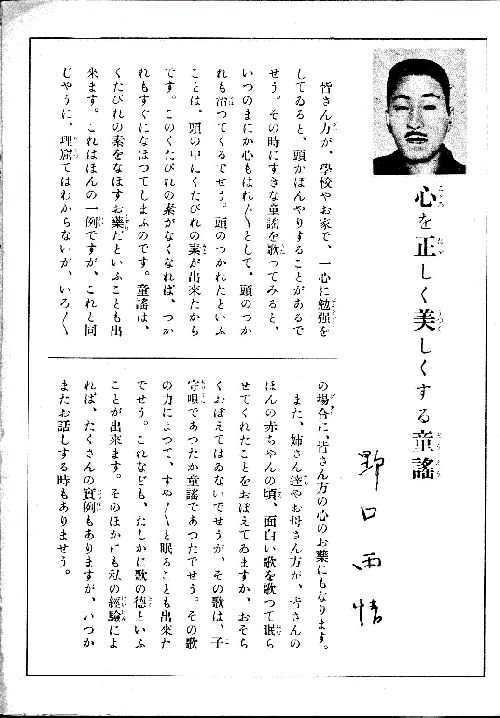 心を正しく美しくする童謠
野口雨情
皆さん方が、學校やお家で、一心に勉强を
してゐると、頭がぼんやりすることがあるで
せう。その時にすきな童謠を歌つてみると、
いつのまにか心もはれ〴〵として、頭のつか
れも治つてくるでせう。頭のつかれたといふ
ことは、頭の中にくたびれの素が出來たから
です。このくたびれの素がなくなれば、つか
れもすぐになほつてしまふのです。童謠は、
くたびれの素をなほすお藥だといふことも出
來ます。これはほんの一例ですが、これと同
じやうに、理窟ではわからないが、いろ〳〵
の場合に、皆さん方の心のお藥にもなります。
また、姉さん達やお母さん方が、皆さんの
ほんの赤ちやんの頃、面白い歌を歌つて眠ら
せてくれたことをおぼえてゐますか、おそら
くおぼえてはゐないでせうが、その歌は、子
守唄であつたか童謠であつたでせう。その歌
の力によつて、すや〳〵と眠ることも出來た
でせう。これなども、たしかに歌の德といふ
ことが出來ます。そのほかにも私の經驗によ
れば、たくさんの實例もありますが、いつか
またお話しする時もありませう。